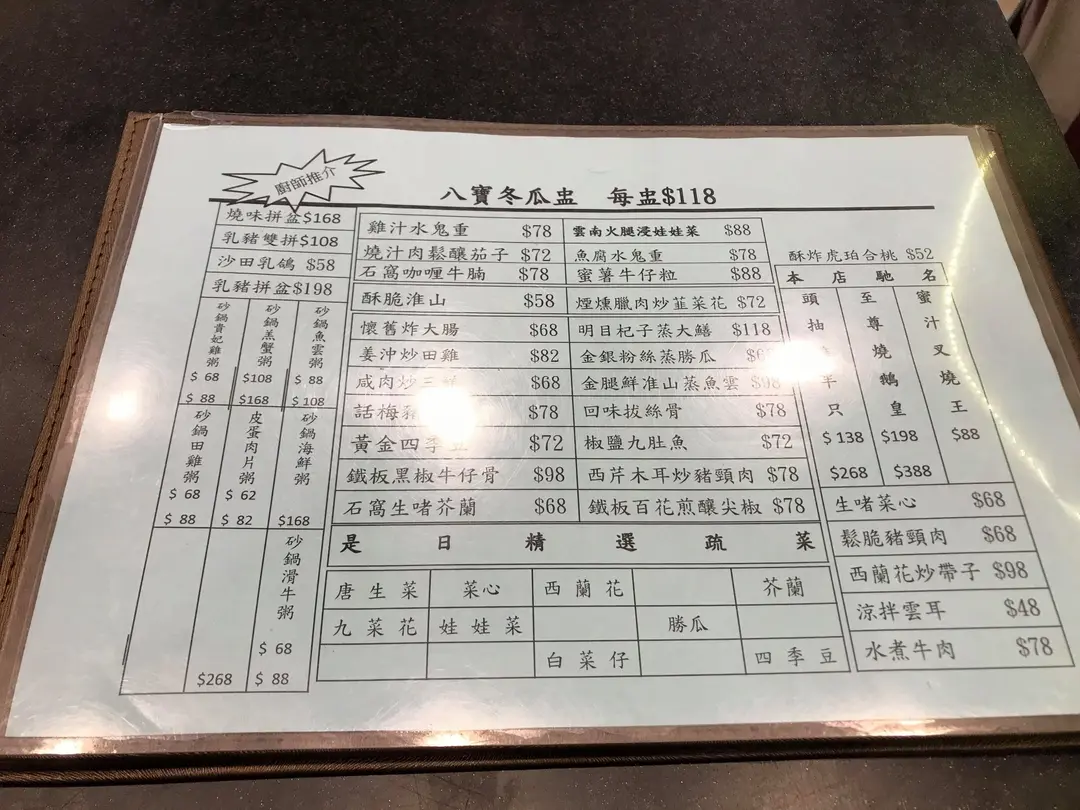 廚師推介
八寶冬瓜盅 每盅$118
燒味拼盆$168
乳豬雙拼$108
沙田乳鴿 $58
乳豬拼盆$198
砂鍋貴妃雞粥
$ 68
$ 88
砂鍋羔蟹粥
$108
$168
砂鍋魚雲粥
$ 88
$ 108
砂鍋田雞粥
$ 68
$ 88
皮蛋肉片粥
$ 62
$ 82
砂鍋海鮮粥
$168
$268
砂鍋滑牛粥
$ 68
$ 88
雞汁水鬼重 $78
雲南火腿浸娃娃菜 $88
燒汁肉鬆釀茄子 $72
魚腐水鬼重 $78
石窩咖喱牛腩 $78
蜜薯牛仔粒 $88
酥脆淮山 $58
煙燻臘肉炒韮菜花 $72
懷舊炸大腸 $68
明目杞子蒸大鱔 $118
姜沖炒田雞 $82
金銀粉絲蒸勝瓜
咸肉炒三 $68
金腿鮮淮山蒸魚雲 $98
話梅 $78
回味拔絲骨 $78
黃金四季豆 $72
椒鹽九肚魚 $72
鐵板黑椒牛仔骨 $98
西芹木耳炒豬頸肉 $78
石窩生啫芥蘭 $68
鐵板百花煎釀尖椒 $78
是日精選疏菜
唐生菜 菜心 西蘭花 芥蘭
九菜花 娃娃菜 勝瓜
白菜仔 四季豆
酥炸虎珀合桃 $52
本店馳名
頭抽 半只
$ 138
$268
至尊燒鵝皇
$198
$388
蜜汁叉燒王
$88
生啫菜心 $68
鬆脆豬頸肉 $68
西蘭花炒帶子 $98
涼拌雲耳 $48
水煮牛肉 $78